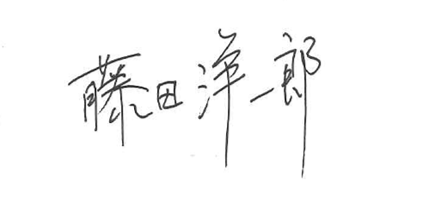 藤田淳一郎